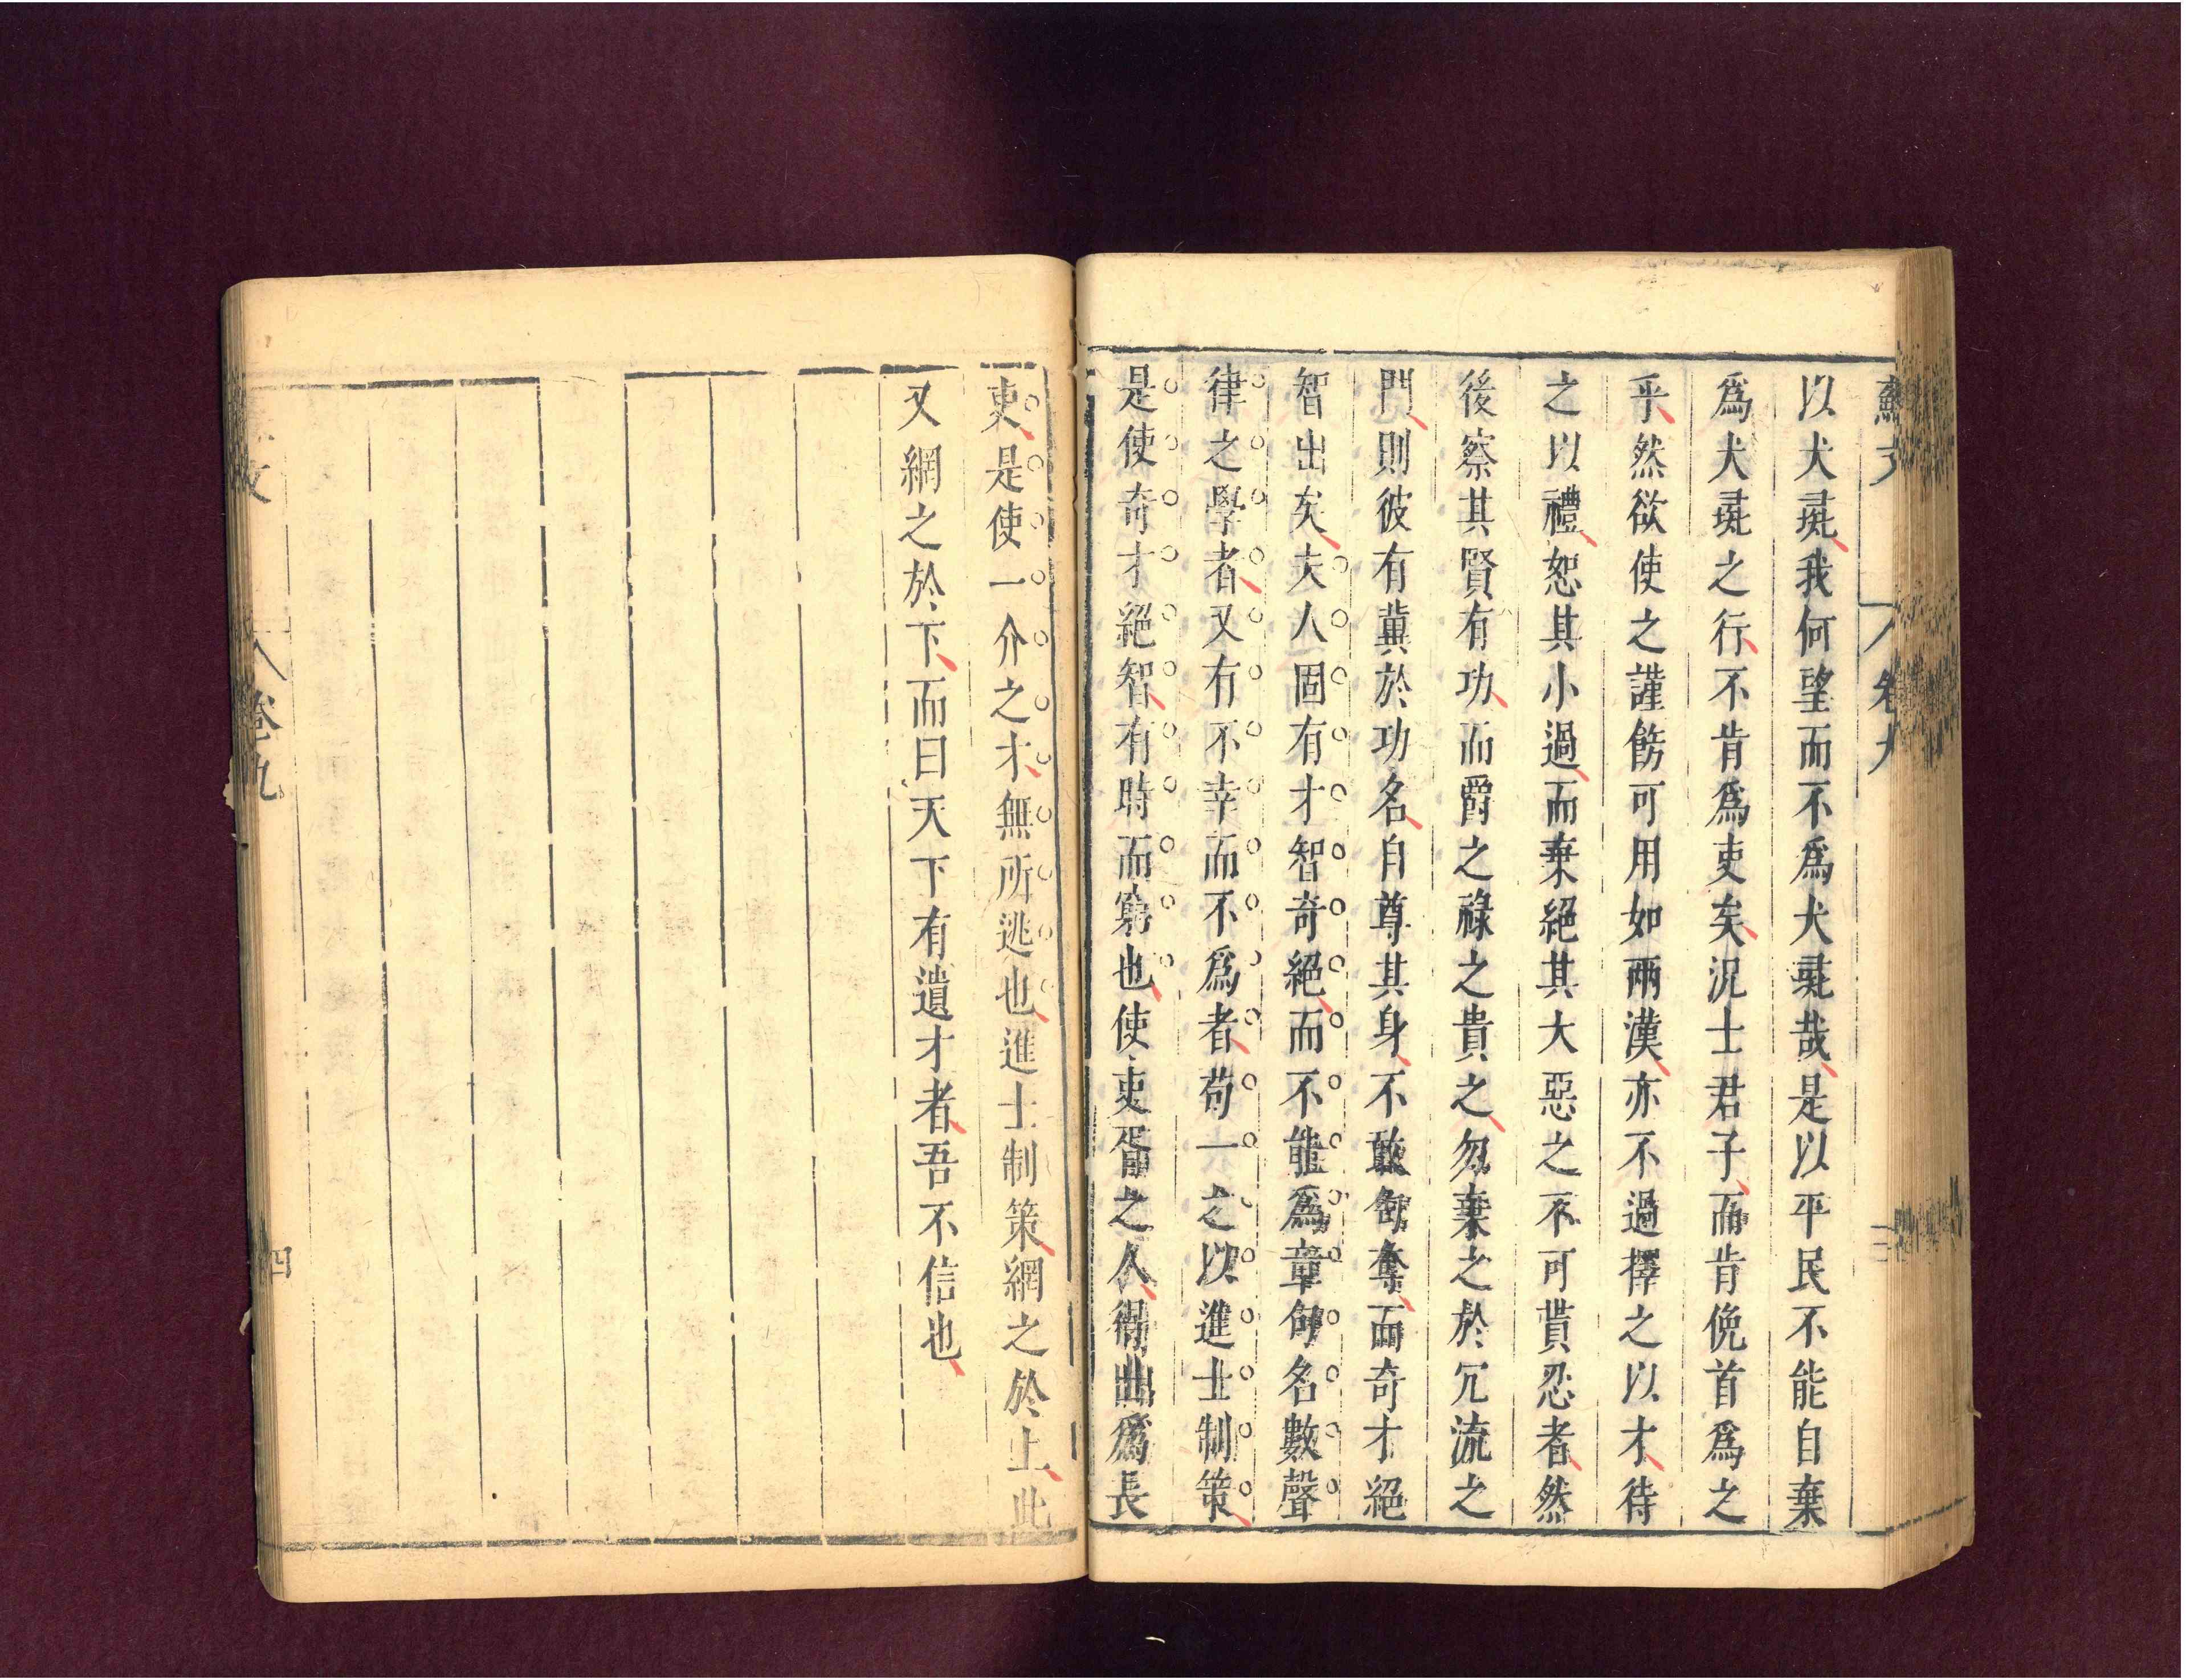 蘇文 卷九
以犬彘我何望而不爲犬彘哉是以平民不能自棄
爲犬彘之行不肯爲吏矣況士君子而肯俛首爲之
乎然欲使之謹飭可用如兩漢亦不過擇之以才待
之以禮恕其小過而棄絕其大惡之不可貰忍者然
後察其賢有功而爵之祿之貴之勿棄之於冗流之
門則彼有冀於功名自尊其身不敢匄奪而奇才絕
智出矣夫人固有才智奇絕而不能爲章句名數聲
律之學者又有不幸而不爲者苟一之以進士制策
是使奇才絕智有時而窮也使吏胥之人得出爲長
吏是使一介之才無所逃也進士制策網之於上此
又網之於下而曰天下有遺才者吾不信也
文 卷九 四